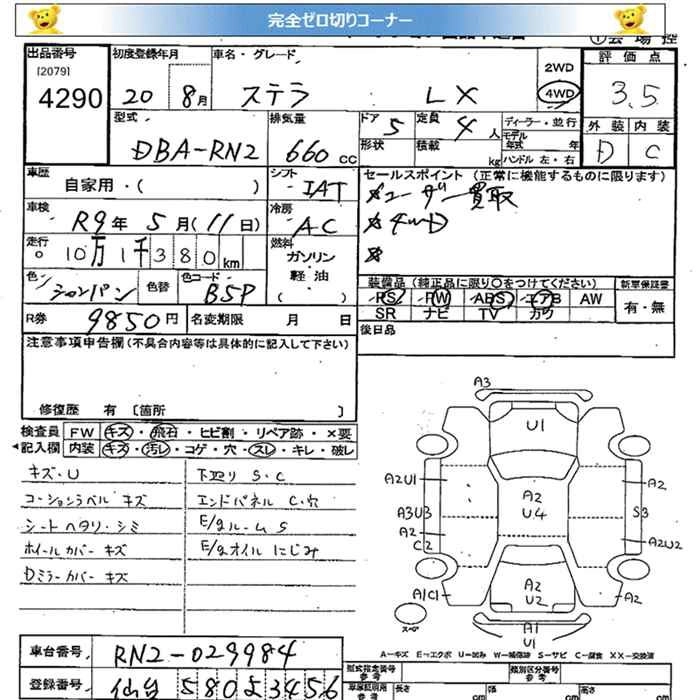 完全ゼロ切りコーナー
出品番号
[2079]
4290
初度登録年月
20 8月
車名・グレード
ステラ LX
2WD
4WD
評価点
3.5
外装 内装
D C
型式
DBA-RN2
排気量
660 cc
ドア 5
定員 4 人
形状
積載 kg
ディーラー・並行
モデル年式 年
ハンドル 左・右
車歴
自家用・( )
シフト
IAT
セールスポイント (正常に機能するものに限ります)
ユーザー買取
4WD
車検
R9年 5月(11日)
冷房
AC
走行
10万1千380km
燃料
ガソリン
軽油
( )
色
シャンパン
色替
色コード
B5P
装備品 (純正品に限り○をつけてください)
PS PW ABS エアB AW
SR ナビ TV カワ
新車保証書
有・無
R券 9850円
名変期限 月 日
後日品
注意事項申告欄 (不具合内容等は具体的に記入して下さい)
修復歴 有 [箇所 ]
検査員記入欄
FW キズ・飛石・ヒビ割・リペア跡・×要
内装 キズ・汚レ・コゲ・穴・スレ・キレ・破レ
キズ・U
コーションラベル キズ
シートヘタリ・シミ
ホイールカバー キズ
Dミラーカバー キズ
下廻り S・C
エンドパネル C・穴
E/gルーム S
E/gオイル にじみ
A3
U1
A2U1
A2
A2
U4
A3U3
S3
A2
C2
A2U2
A2
U2
A1C1
A2
スペア
A1
U1
A=キズ E=エクボ U=凹み W=補修跡 S=サビ C=腐食 XX=交換済
車台番号
RN2-029984
登録番号
仙台 580 え 3456
型式指定番号
参考
類別区分番号
参考
長さ
幅
高さ